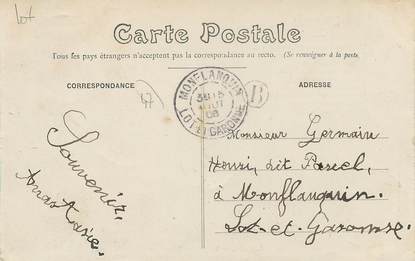 Lot
Carte Postale
Tous ses pays étrangers n'acceptent pas la correspondance au recto. (Se renseigner à la poste
CORRESPONDANCE
ADRESSE
47
MONFLANQUIN
LOT ET GARONNE
B
Souvenir.
Monsieur Germain
Henri, dit Pascel,
à Monflanquin.
Lot-et-Garonne.